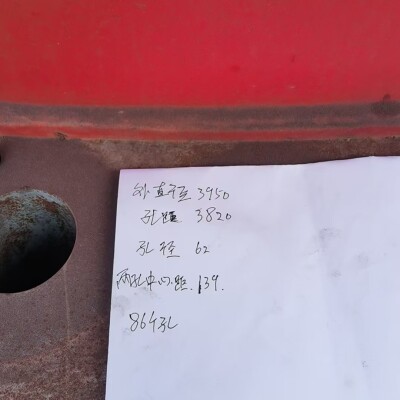 外直径 3950
孔距 3820
孔径 62
两孔中心距. 139.
864孔